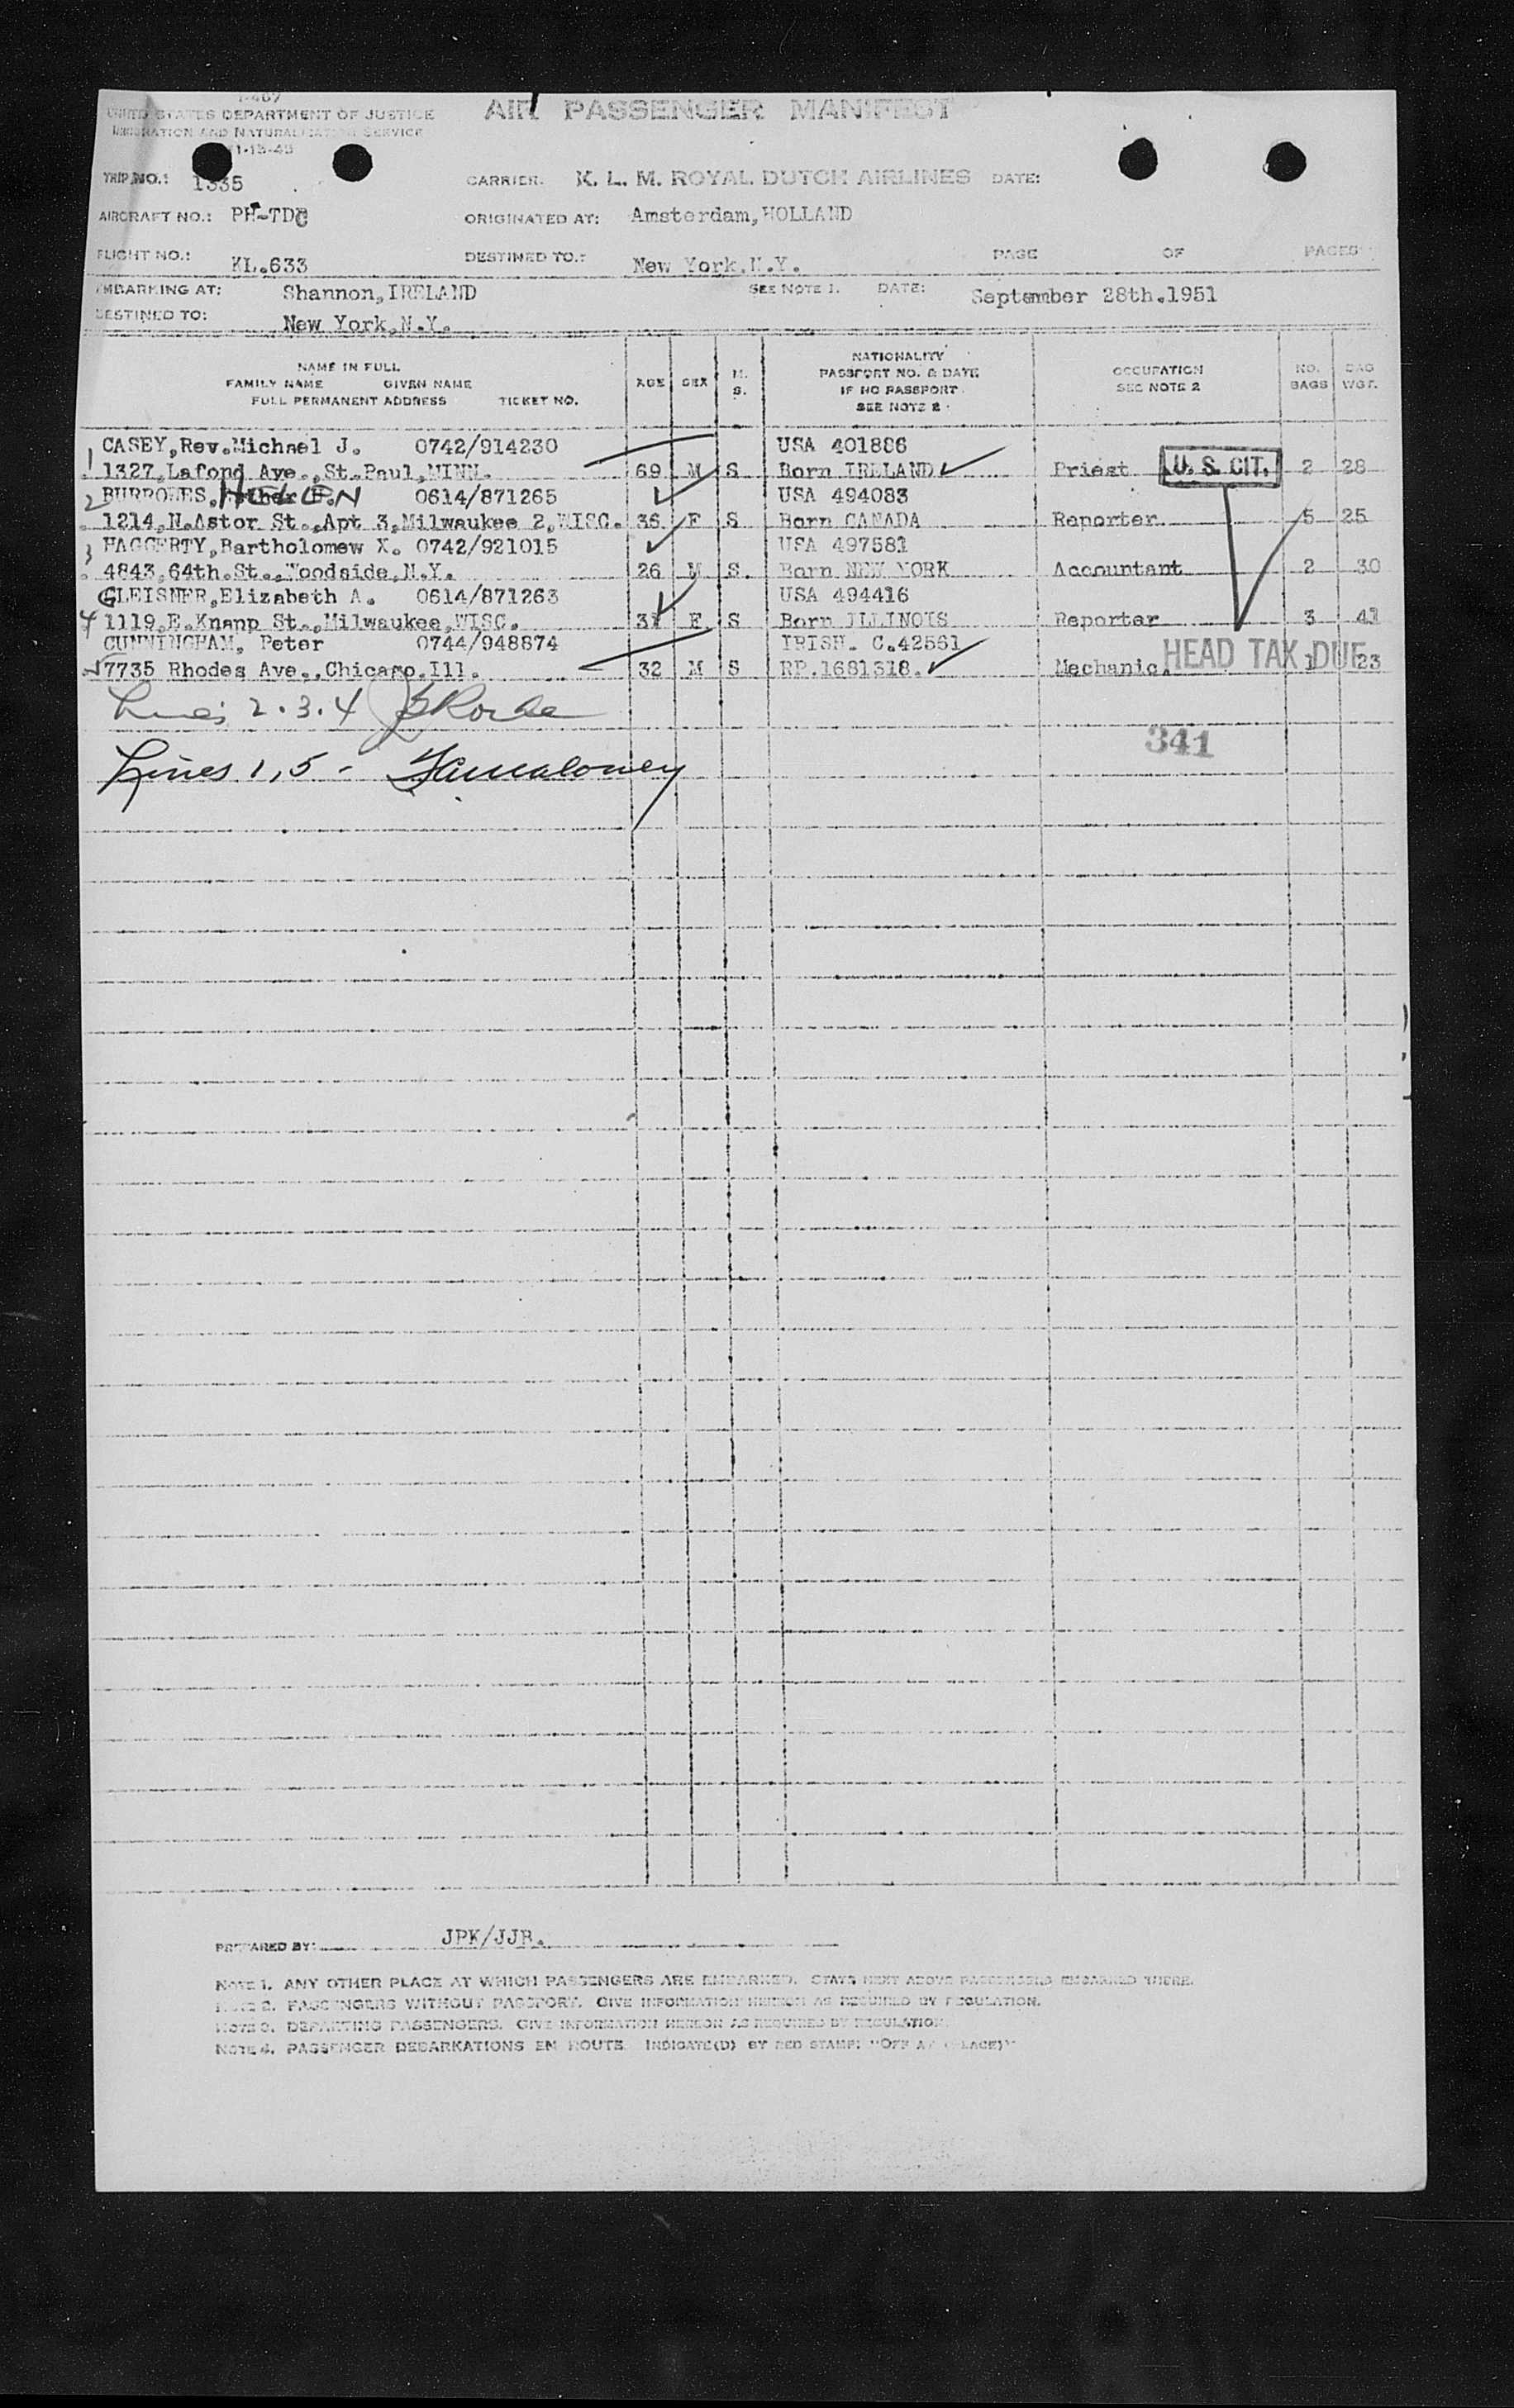 I-467
UNITED STATES DEPARTMENT OF JUSTICE
IMMIGRATION AND NATURALIZATION SERVICE
11-15-43
AIR PASSENGER MANIFEST
TRIP NO.: 1335 CARRIER. K. L. M. ROYAL DUTCH AIRLINES DATE:
AIRCRAFT NO.: PH-TDC ORIGINATED AT: Amsterdam,HOLLAND
FLIGHT NO.: KL.633 DESTINED TO.: New York,N.Y. PAGE OF PAGES
EMBARKING AT: Shannon,IRELAND SEE NOTE 1. DATE: September 28th.1951
DESTINED TO: New York,N.Y.
NAME IN FULL
FAMILY NAME GIVEN NAME
FULL PERMANENT ADDRESS TICKET NO.
AGE SEX M. S.
NATIONALITY
PASSPORT NO. & DATE
IF NO PASSPORT
SEE NOTE 2
OCCUPATION
SEE NOTE 2
NO. BAGS
BAG WGT.
1 CASEY,Rev.Michael J. 0742/914230 USA 401886
1327,Lafond Ave.,St.Paul,MINN. 69 M S Born IRELAND Priest U. S. CIT. 2 28
2 BURROWES, HELEN 0614/871265 USA 494083
1214,N.Astor St.,Apt 3,Milwaukee 2,WISC. 36 F S Born CANADA Reporter 5 25
3 HAGGERTY,Bartholomew X. 0742/921015 USA 497581
4843,64th.St.,Woodside,N.Y. 26 M S. Born NEW YORK Accountant 2 30
GLEISNER,Elizabeth A. 0614/871263 USA 494416
4 1119,E.Knapp St.,Milwaukee,WISC. 37 F S Born ILLINOIS Reporter 3 41
CUNNINGHAM, Peter 0744/948874 IRISH. C.42561
5 7735 Rhodes Ave.,Chicago,Ill. 32 M S RP.1681518. Mechanic. HEAD TAX DUE 1 23
Lines 2.3.4
341
Lines 1,5 -
PREPARED BY: JPK/JJR.
NOTE 1. ANY OTHER PLACE AT WHICH PASSENGERS ARE EMBARKED. STATE NEXT ABOVE PASSENGERS EMBARKED THERE.
NOTE 2. PASSENGERS WITHOUT PASSPORT. GIVE INFORMATION HEREON AS REQUIRED BY REGULATION.
NOTE 3. DEPARTING PASSENGERS. GIVE INFORMATION HEREON AS REQUIRED BY REGULATION.
NOTE 4. PASSENGER DEBARKATIONS EN ROUTE. INDICATE(D) BY RED STAMP: "OFF AT (PLACE)"